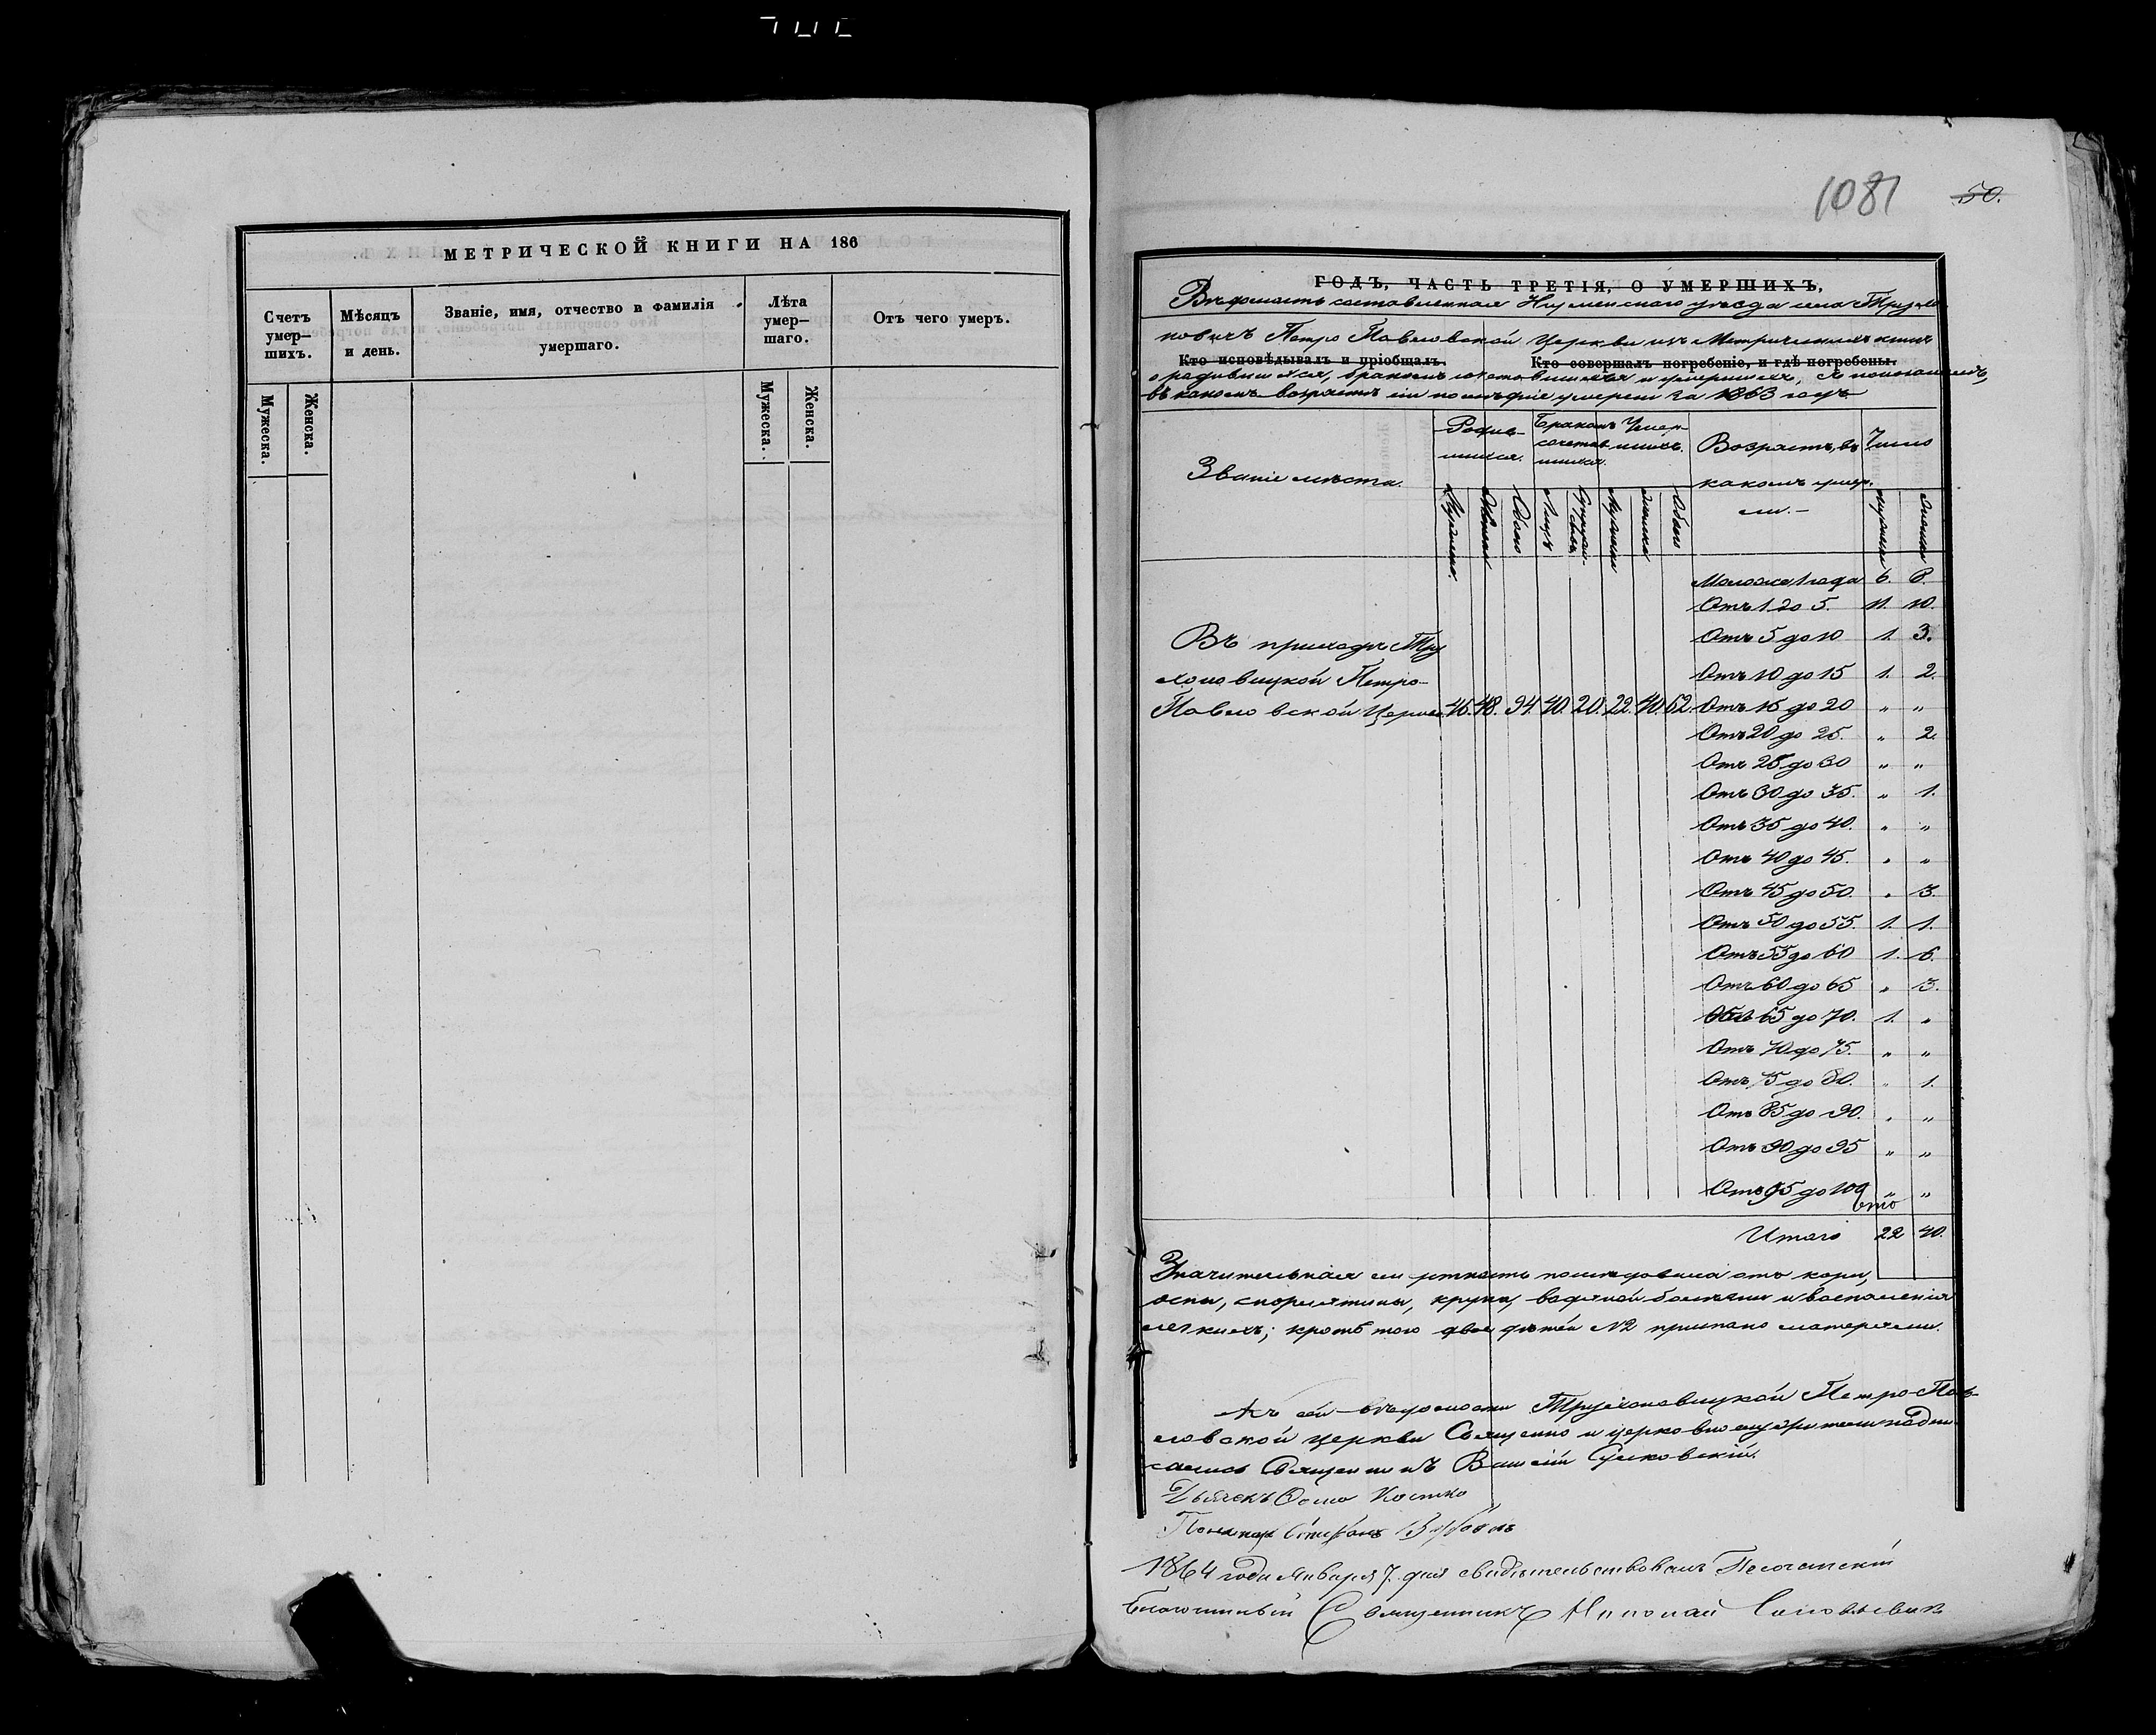 МЕТРИЧЕСКОЙ КНИГИ НА 186
Счетъ умер–шихъ.
Мѣсяцъ и день.
Званіе, имя, отчество и фамилія умершаго.
Лѣта умер–шаго.
Отъ чего умеръ.
Мужеска.
Женска.
Мужеска.
Женска.
1081
50.
ГОДЪ, ЧАСТЬ ТРЕТІЯ, О УМЕРШИХЪ,
Вѣдомость составленная Игуменскаго уѣзда села Трухо
новичъ Петро Павловской Церкви изъ Метрическихъ книгъ
Кто исповѣдывалъ и пріобщалъ.
Кто совершалъ погребеніе, и гдѣ погребены.
о родившихся, бракомъ сочетавшихся и умершихъ, съ показаніемъ,
въ какомъ возрастѣ сіи послѣдніе умерли за 1863 годъ
Званіе мѣста.
Родив–шихся.
Бракомъ сочетав шихся.
Умер–шихъ.
Возрастъ, въ какомъ умер–ли.–
Число
Мужеска.
Женска
Обоего
Лицъ
Супруже–ствъ
Мужеска
Женска
Обоего
Мужеска
Женска
Моложе 1 года 6. 8.
Отъ 1 до 5. 11. 10.
Отъ 5 до 10 1. 3.
Отъ 10 до 15 1. 2.
Въ приходѣ Тру
хоновицкой Петро–
Павловской Церкви 46. 48. 94. 40. 20. 22. 40. 62. Отъ 15 до 20 „ „
Отъ 20 до 25. „ 2.
Отъ 25 до 30 „ „
Отъ 30 до 35. „ 1.
Отъ 35 до 40. „ „
Отъ 40 до 45. „ „
Отъ 45 до 50. „ 3.
Отъ 50 до 55. 1. 1.
Отъ 55 до 60 1. 6.
Отъ 60 до 65 „ 3.
Отъ 65 до 70. 1. „
Отъ 70 до 75. „ „
Отъ 75 до 80. „ 1.
Отъ 85 до 90. „ „
Отъ 90 до 95 „ „
Отъ 95 до 100 „ „
Итого 22 40.
Значительная смертность послѣдовала отъ кори,
оспы, скорлятины, крупа, водяной болѣзни и воспаленія
легкихъ; кромѣ того двое дѣтей приспано матерями.
Къ сей вѣдомости Трухоновицкой Петро–Пав–
ловской церкви Священно и церковно служители подпи
сались Священникъ
Дьячекъ Ѳома Костко
Пономарь Стефанъ
1864 года Января 7. дня свидѣтельствовалъ
Благочинный Священникъ Николай